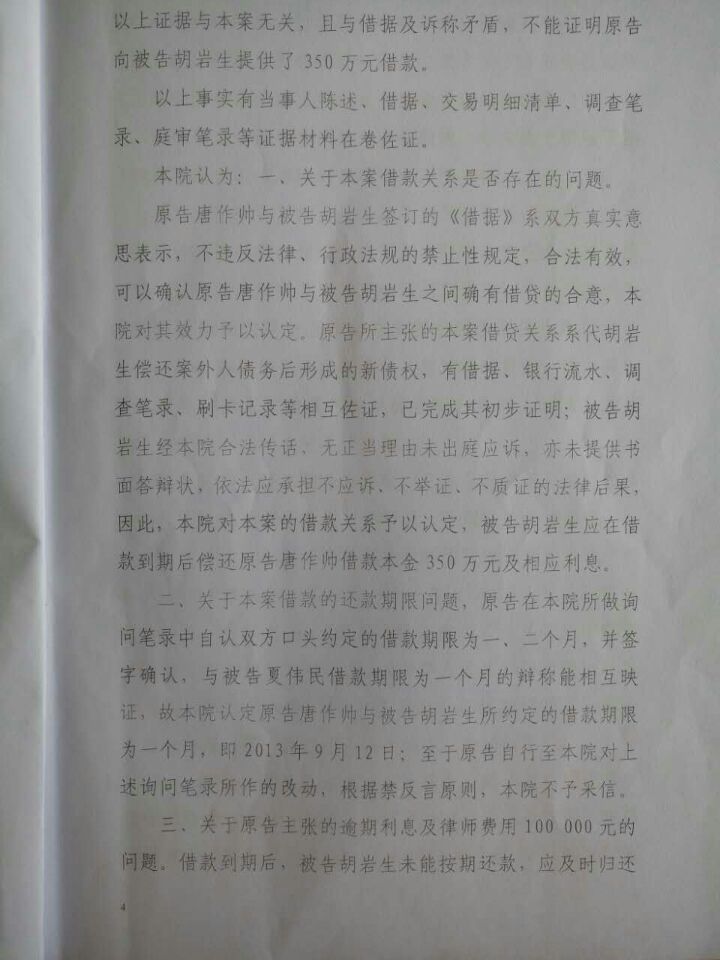 以上证据与本案无关，且与借据及诉称矛盾，不能证明原告
向被告胡岩生提供了 350 万元借款。
以上事实有当事人陈述、借据、交易明细清单、调查笔
录、庭审笔录等证据材料在卷佐证。
本院认为：一、关于本案借款关系是否存在的问题。
原告唐作帅与被告胡岩生签订的《借据》系双方真实意
思表示，不违反法律、行政法规的禁止性规定，合法有效，
可以确认原告唐作帅与被告胡岩生之间确有借贷的合意，本
院对其效力予以认定。原告所主张的本案借贷关系系代胡岩
生偿还案外人债务后形成的新债权，有借据、银行流水、调
查笔录、刷卡记录等相互佐证，已完成其初步证明；被告胡
岩生经本院合法传话，无正当理由未出庭应诉，亦未提供书
面答辩状，依法应承担不应诉、不举证、不质证的法律后果，
因此，本院对本案的借款关系予以认定，被告胡岩生应在借
款到期后偿还原告唐作帅借款本金 350 万元及相应利息。
二、关于本案借款的还款期限问题，原告在本院所做询
问笔录中自认双方口头约定的借款期限为一、二个月，并签
字确认，与被告夏伟民借款期限为一个月的辩称能相互映
证，故本院认定原告唐作帅与被告胡岩生所约定的借款期限
为一个月，即 2013 年 9 月 12 日；至于原告自行至本院对上
述询问笔录所作的改动，根据禁反言原则，本院不予采信。
三、关于原告主张的逾期利息及律师费用 100 000 元的
问题。借款到期后，被告胡岩生未能按期还款，应及时归还
4